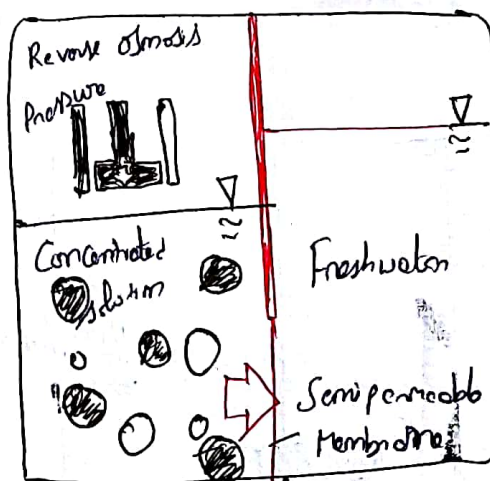 Reverse Osmosis
Pressure
Concentrated
solution
Freshwater
Semipermeable
Membrane